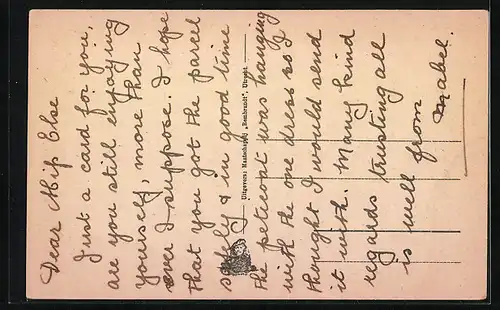 Dear Miss Else
Just a card for you,
are you still enjoying
yourself, more than
ever I suppose. I hope
that you got the parcel
safely & in good time
the peticoat was hanging
with the one dress so I
thought I would send
it with. Many kind
regards trusting all
is well from
Mabel.
Uitgevers Maatschappij „Rembrandt", Utrecht.